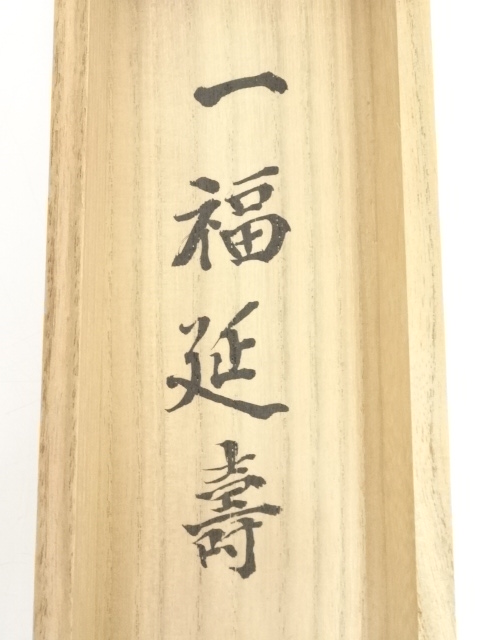 一福延壽